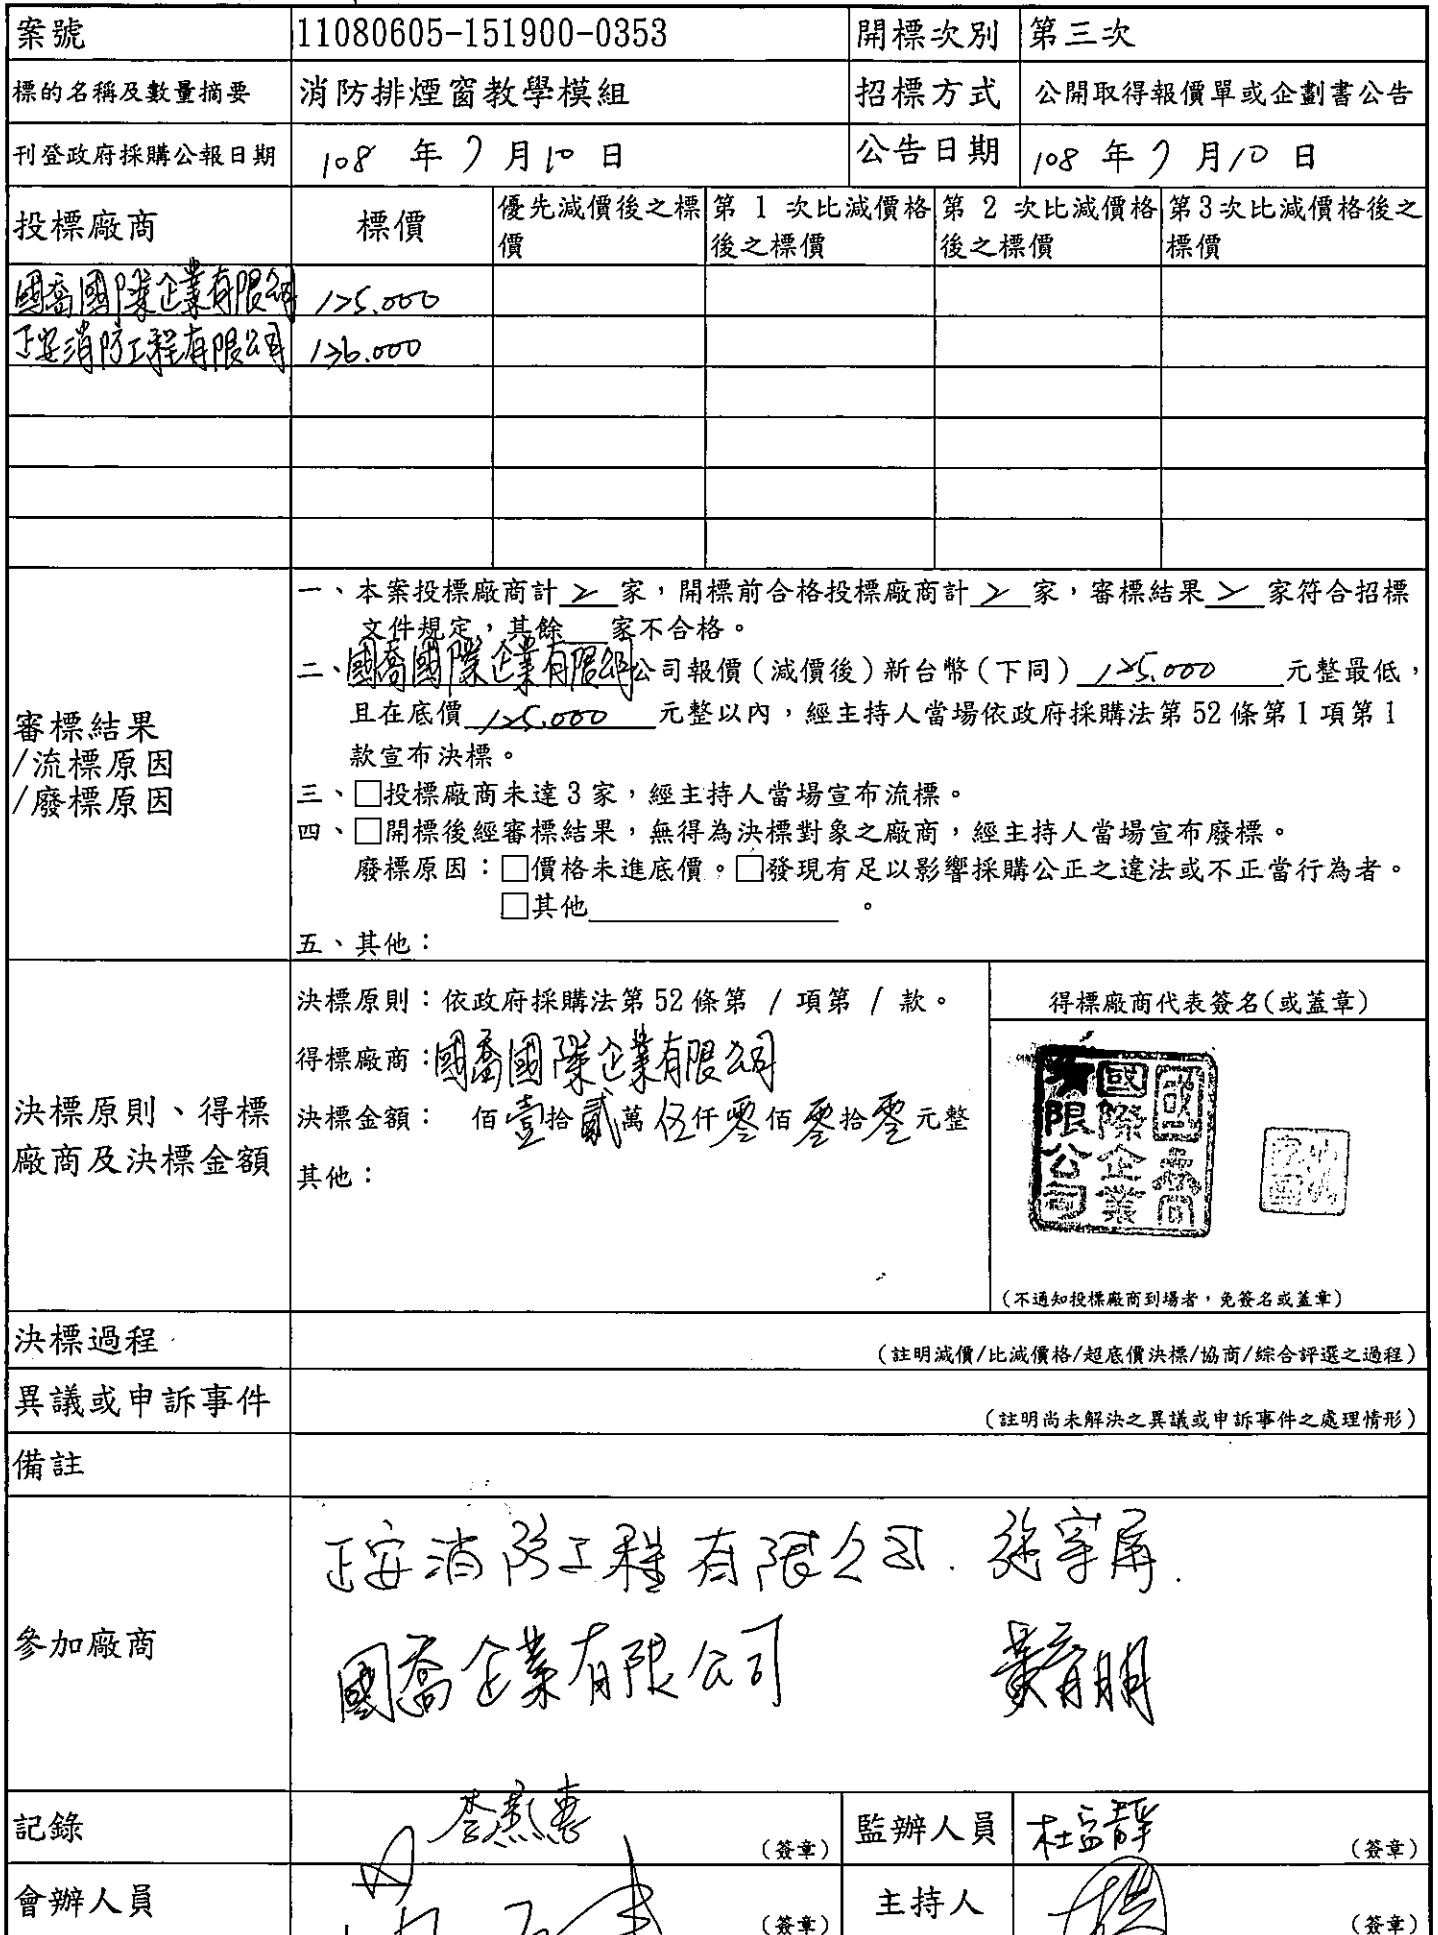 案號 11080605-151900-0353 開標次別 第三次
標的名稱及數量摘要 消防排煙窗教學模組 招標方式 公開取得報價單或企劃書公告
刊登政府採購公報日期 108 年 7 月 10 日 公告日期 108 年 7 月 10 日
投標廠商 標價 優先減價後之標價 第 1 次比減價格後之標價 第 2 次比減價格後之標價 第3次比減價格後之標價
國喬國際企業有限公司 125.000
正安消防工程有限公司 126.000
審標結果
/流標原因
/廢標原因
一、本案投標廠商計 2 家，開標前合格投標廠商計 2 家，審標結果 2 家符合招標
文件規定，其餘 家不合格。
二、國喬國際企業有限公司公司報價(減價後)新台幣(下同) 125.000 元整最低，
且在底價 125.000 元整以內，經主持人當場依政府採購法第 52 條第 1 項第 1
款宣布決標。
三、□投標廠商未達 3 家，經主持人當場宣布流標。
四、□開標後經審標結果，無得為決標對象之廠商，經主持人當場宣布廢標。
廢標原因：□價格未進底價。□發現有足以影響採購公正之違法或不正當行為者。
□其他 。
五、其他：
決標原則、得標
廠商及決標金額
決標原則：依政府採購法第 52 條第 1 項第 1 款。
得標廠商：國喬國際企業有限公司
決標金額： 佰壹拾貳萬伍仟零佰零拾零元整
其他：
得標廠商代表簽名(或蓋章)
國喬
國際企業
有限公司
(不通知投標廠商到場者，免簽名或蓋章)
決標過程 (註明減價/比減價格/超底價決標/協商/綜合評選之過程)
異議或申訴事件 (註明尚未解決之異議或申訴事件之處理情形)
備註
參加廠商
正安消防工程有限公司.
國喬企業有限公司
記錄 (簽章) 監辦人員 (簽章)
會辦人員 (簽章) 主持人 (簽章)